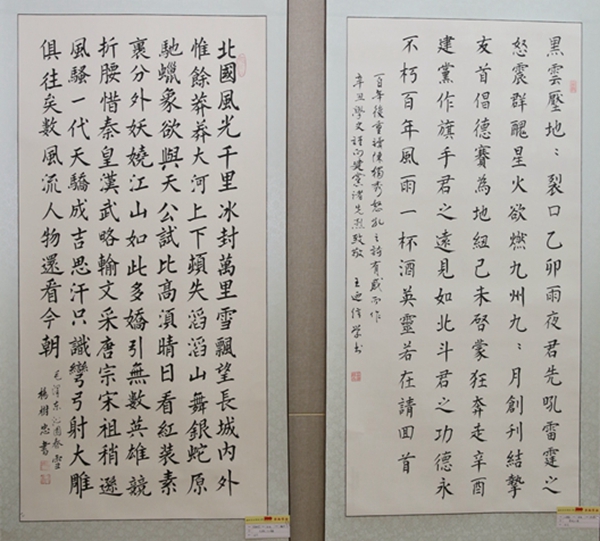 北國風光千里冰封萬里雪飄望長城内外
惟餘莽莽大河上下頓失滔滔山舞銀蛇原
馳蠟象欲與天公試比高湏晴日看紅裝素
裹分外妖嬈江山如此多嬌引無數英雄競
折腰惜秦皇漢武略輸文采唐宗宋祖稍遜
風騷一代天驕成吉思汗只識彎弓射大雕
俱往矣數風流人物還看今朝
毛澤東沁園春雪
楊樹忠書
黑雲壓地：裂口乙卯雨夜君先吼雷霆之
怒震群醜星火欲燃九州九：月創刊結摯
友首倡德賽為地紐己未啓蒙狂奔走辛酉
建黨作旗手君之遠見如北斗君之功德永
不朽百年風雨一杯酒英靈若在請回首
百年後重讀陳獨秀之詩有感而作
辛丑學史謹向建党諸先烈致敬 王學书